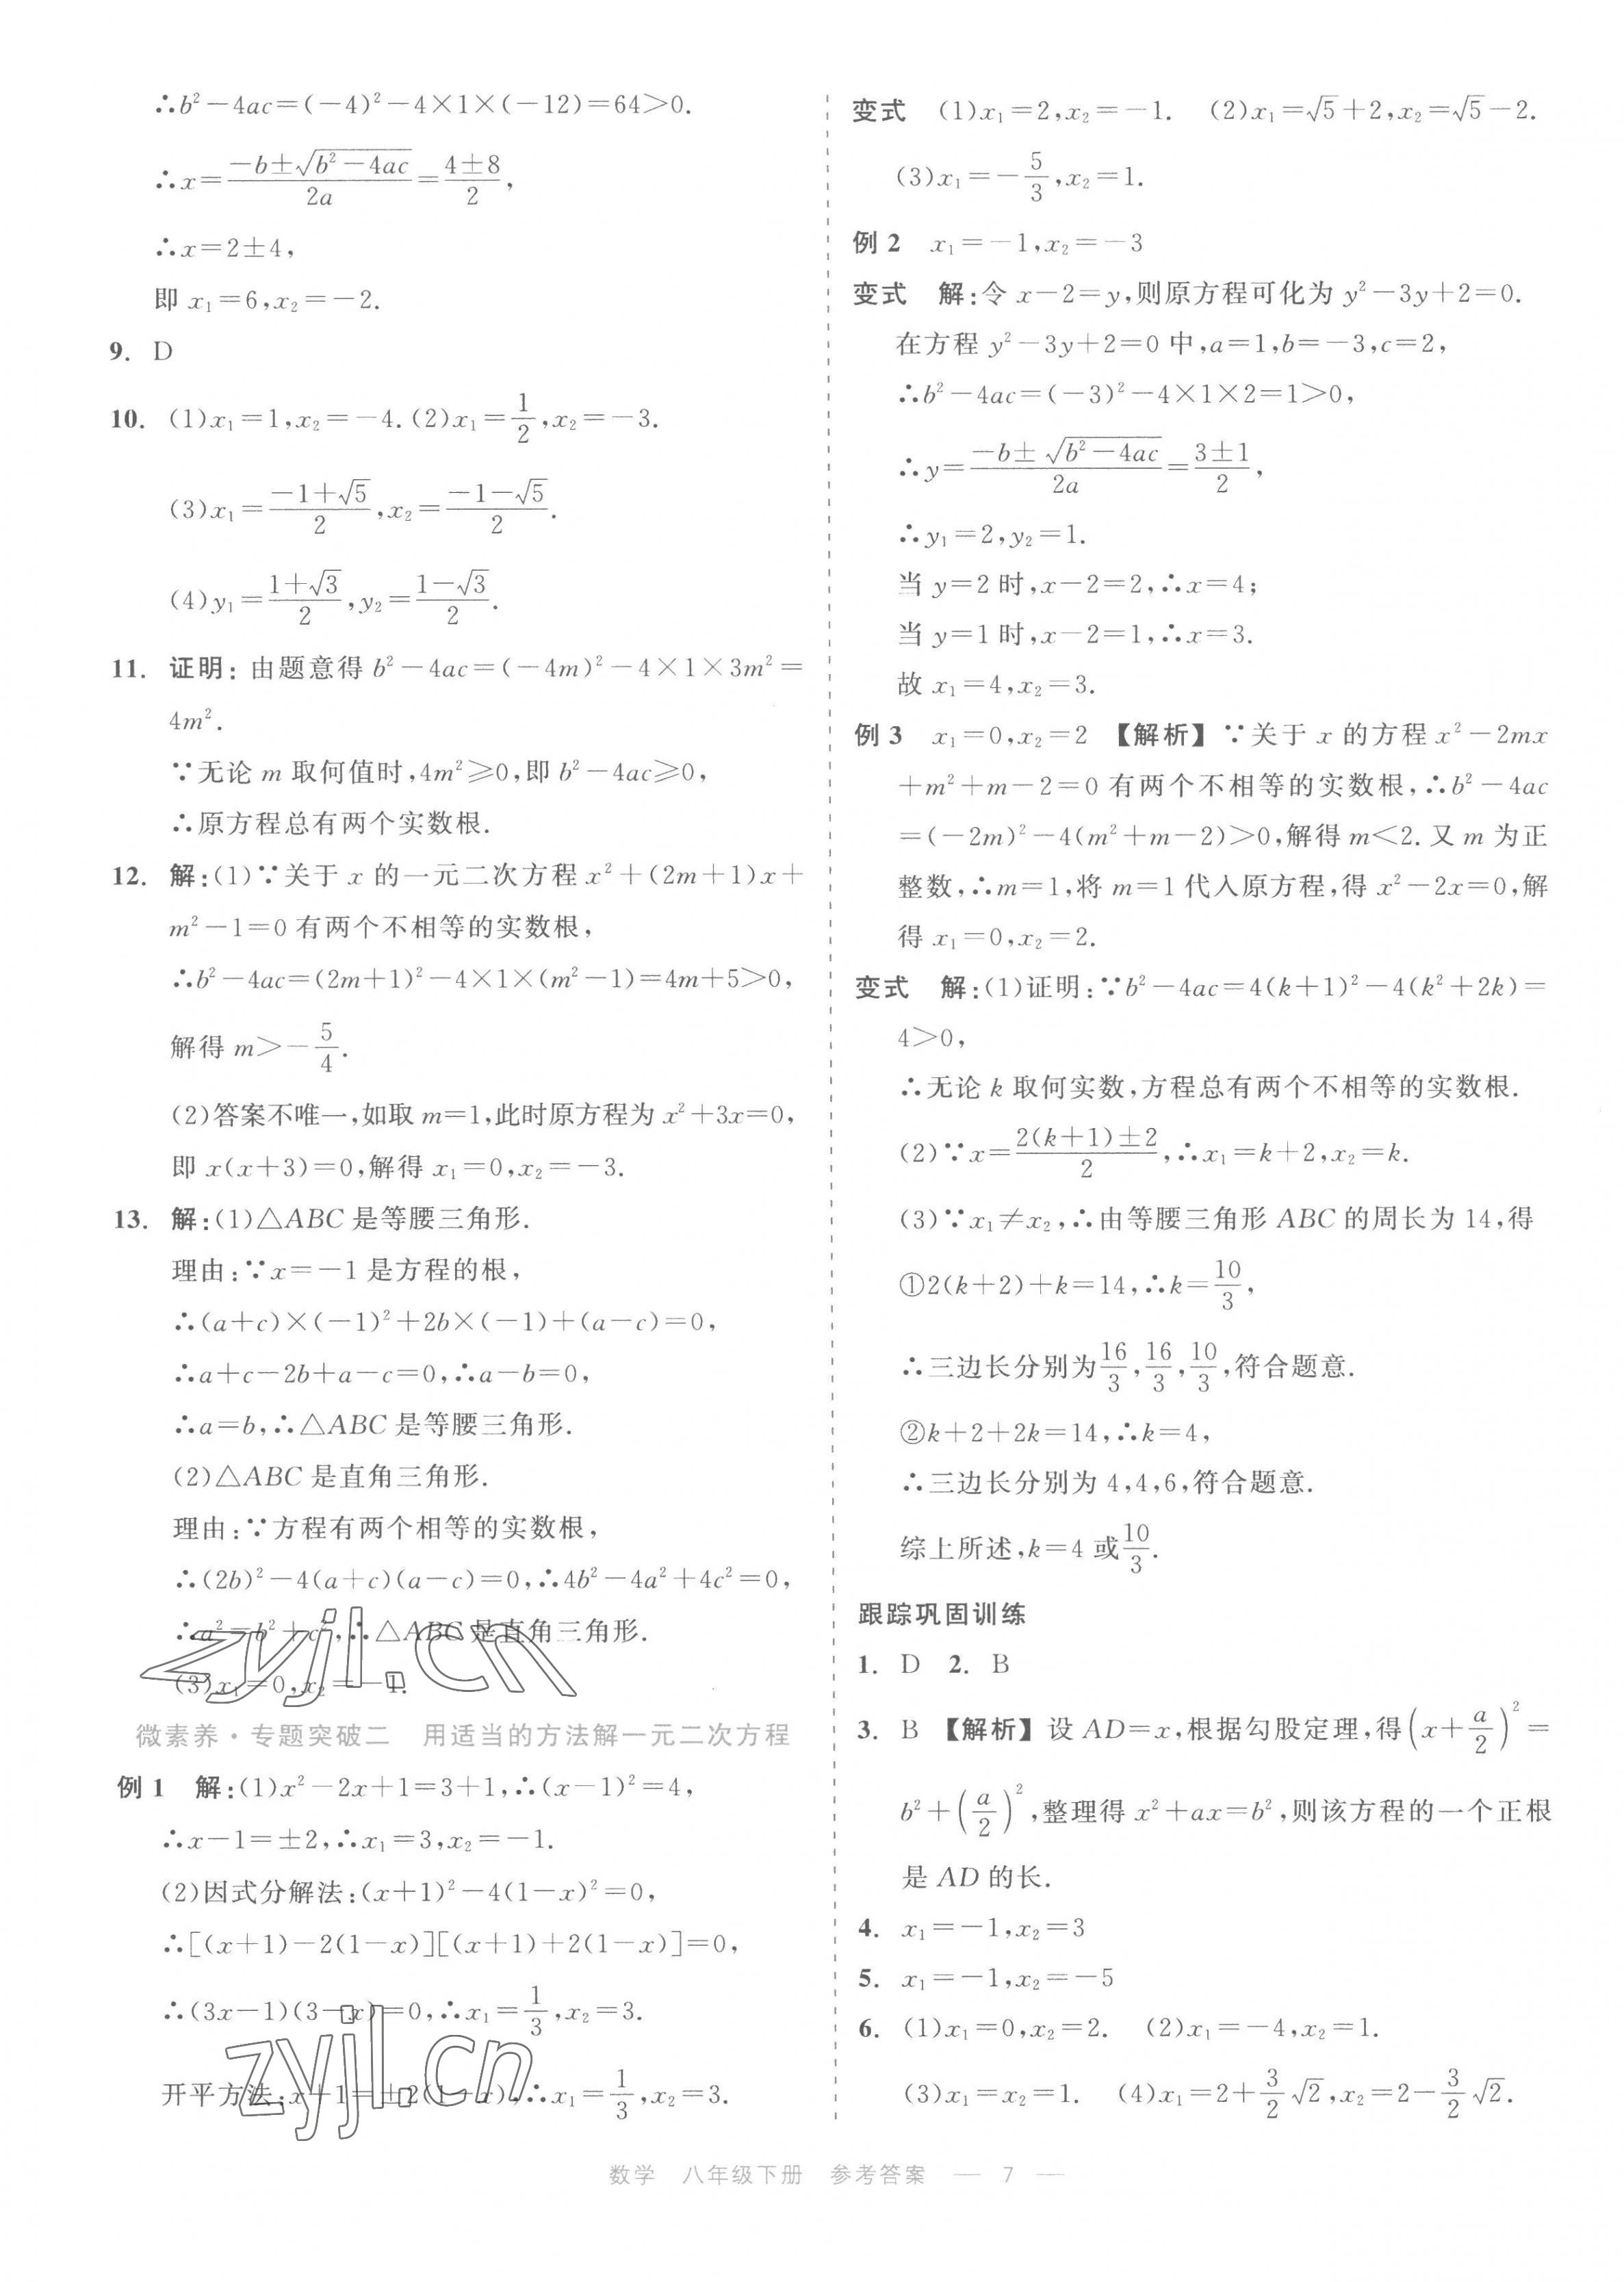 ∴b²-4ac=(-4)²-4×1×(-12)=64>0.
∴x=\frac{-b±\sqrt{b²-4ac}}{2a}=\frac{4±8}{2},
∴x=2±4,
即 x₁=6,x₂=-2.
9. D
10. (1)x₁=1,x₂=-4. (2)x₁=\frac{1}{2},x₂=-3.
(3)x₁=\frac{-1+\sqrt{5}}{2},x₂=\frac{-1-\sqrt{5}}{2}.
(4)y₁=\frac{1+\sqrt{3}}{2},y₂=\frac{1-\sqrt{3}}{2}.
11. 证明:由题意得 b²-4ac=(-4m)²-4×1×3m²=
4m².
∵无论 m 取何值时,4m²≥0,即 b²-4ac≥0,
∴原方程总有两个实数根.
12. 解:(1)∵关于 x 的一元二次方程 x²+(2m+1)x+
m²-1=0 有两个不相等的实数根,
∴b²-4ac=(2m+1)²-4×1×(m²-1)=4m+5>0,
解得 m>-\frac{5}{4}.
(2)答案不唯一,如取 m=1,此时原方程为 x²+3x=0,
即 x(x+3)=0,解得 x₁=0,x₂=-3.
13. 解:(1)△ABC 是等腰三角形.
理由:∵x=-1 是方程的根,
∴(a+c)×(-1)²+2b×(-1)+(a-c)=0,
∴a+c-2b+a-c=0,∴a-b=0,
∴a=b,∴△ABC 是等腰三角形.
(2)△ABC 是直角三角形.
理由:∵方程有两个相等的实数根,
∴(2b)²-4(a+c)(a-c)=0,∴4b²-4a²+4c²=0,
∴a²=b²+c²,∴△ABC 是直角三角形.
(3)x₁=0,x₂=-1.
zyjl.cn
微素养·专题突破二 用适当的方法解一元二次方程
例 1 解:(1)x²-2x+1=3+1,∴(x-1)²=4,
∴x-1=±2,∴x₁=3,x₂=-1.
(2)因式分解法:(x+1)²-4(1-x)²=0,
∴[(x+1)-2(1-x)][(x+1)+2(1-x)]=0,
∴(3x-1)(3-x)=0,∴x₁=\frac{1}{3},x₂=3.
开平方法:x+1=±2(1-x),∴x₁=\frac{1}{3},x₂=3.
zyjl.cn
变式 (1)x₁=2,x₂=-1. (2)x₁=\sqrt{5}+2,x₂=\sqrt{5}-2.
(3)x₁=-\frac{5}{3},x₂=1.
例 2 x₁=-1,x₂=-3
变式 解:令 x-2=y,则原方程可化为 y²-3y+2=0.
在方程 y²-3y+2=0 中,a=1,b=-3,c=2,
∴b²-4ac=(-3)²-4×1×2=1>0,
∴y=\frac{-b±\sqrt{b²-4ac}}{2a}=\frac{3±1}{2},
∴y₁=2,y₂=1.
当 y=2 时,x-2=2,∴x=4;
当 y=1 时,x-2=1,∴x=3.
故 x₁=4,x₂=3.
例 3 x₁=0,x₂=2 【解析】∵关于 x 的方程 x²-2mx
+m²+m-2=0 有两个不相等的实数根,∴b²-4ac
=(-2m)²-4(m²+m-2)>0,解得 m<2. 又 m 为正
整数,∴m=1,将 m=1 代入原方程,得 x²-2x=0,解
得 x₁=0,x₂=2.
变式 解:(1)证明:∵b²-4ac=4(k+1)²-4(k²+2k)=
4>0,
∴无论 k 取何实数,方程总有两个不相等的实数根.
(2)∵x=\frac{2(k+1)±2}{2},∴x₁=k+2,x₂=k.
(3)∵x₁≠x₂,∴由等腰三角形 ABC 的周长为 14,得
①2(k+2)+k=14,∴k=\frac{10}{3},
∴三边长分别为\frac{16}{3},\frac{16}{3},\frac{10}{3},符合题意.
②k+2+2k=14,∴k=4,
∴三边长分别为 4,4,6,符合题意.
综上所述,k=4 或\frac{10}{3}.
跟踪巩固训练
1. D 2. B
3. B 【解析】设 AD=x,根据勾股定理,得(x+\frac{a}{2})²=
b²+(\frac{a}{2})²,整理得 x²+ax=b²,则该方程的一个正根
是 AD 的长.
4. x₁=-1,x₂=3
5. x₁=-1,x₂=-5
6. (1)x₁=0,x₂=2. (2)x₁=-4,x₂=1.
(3)x₁=x₂=1. (4)x₁=2+\frac{3}{2}\sqrt{2},x₂=2-\frac{3}{2}\sqrt{2}.
数学 八年级下册 参考答案 — 7 —